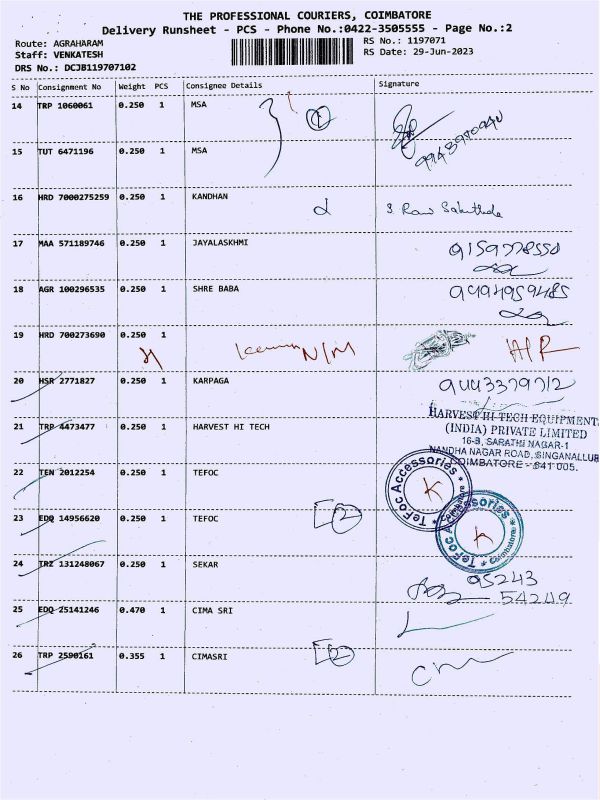 THE PROFESSIONAL COURIERS, COIMBATORE
Delivery Runsheet - PCS - Phone No.:0422-3505555 - Page No.:2
Route: AGRAHARAM
Staff: VENKATESH
DRS No.: DCJB119707102
RS No.: 1197071
RS Date: 29-Jun-2023
S No Consignment No Weight PCS Consignee Details Signature
14 TRP 1060061 0.250 1 MSA 1
15 TUT 6471196 0.250 1 MSA
16 HRD 7000275259 0.250 1 KANDHAN
17 MAA 571189746 0.250 1 JAYALASKHMI 9159778550
18 AGR 100296535 0.250 1 SHRE BABA 9494959485
19 HRD 700273690 0.250 1 N/M
20 HSR 2771827 0.250 1 KARPAGA 9443379712
21 TRP 4473477 0.250 1 HARVEST HI TECH
HARVEST HI TECH EQUIPMENTS
(INDIA) PRIVATE LIMITED
16-B, SARATHI NAGAR-1
NANDHA NAGAR ROAD, SINGANALLUR
COIMBATORE - 641 005.
22 TEN 2012254 0.250 1 TEFOC
TeFoc Accessories
Coimbatore
23 EDQ 14956620 0.250 1 TEFOC 2
TeFoc Accessories
Coimbatore
24 TRZ 131248067 0.250 1 SEKAR 95243
54249
25 EDQ 25141246 0.470 1 CIMA SRI
26 TRP 2590161 0.355 1 CIMASRI 2